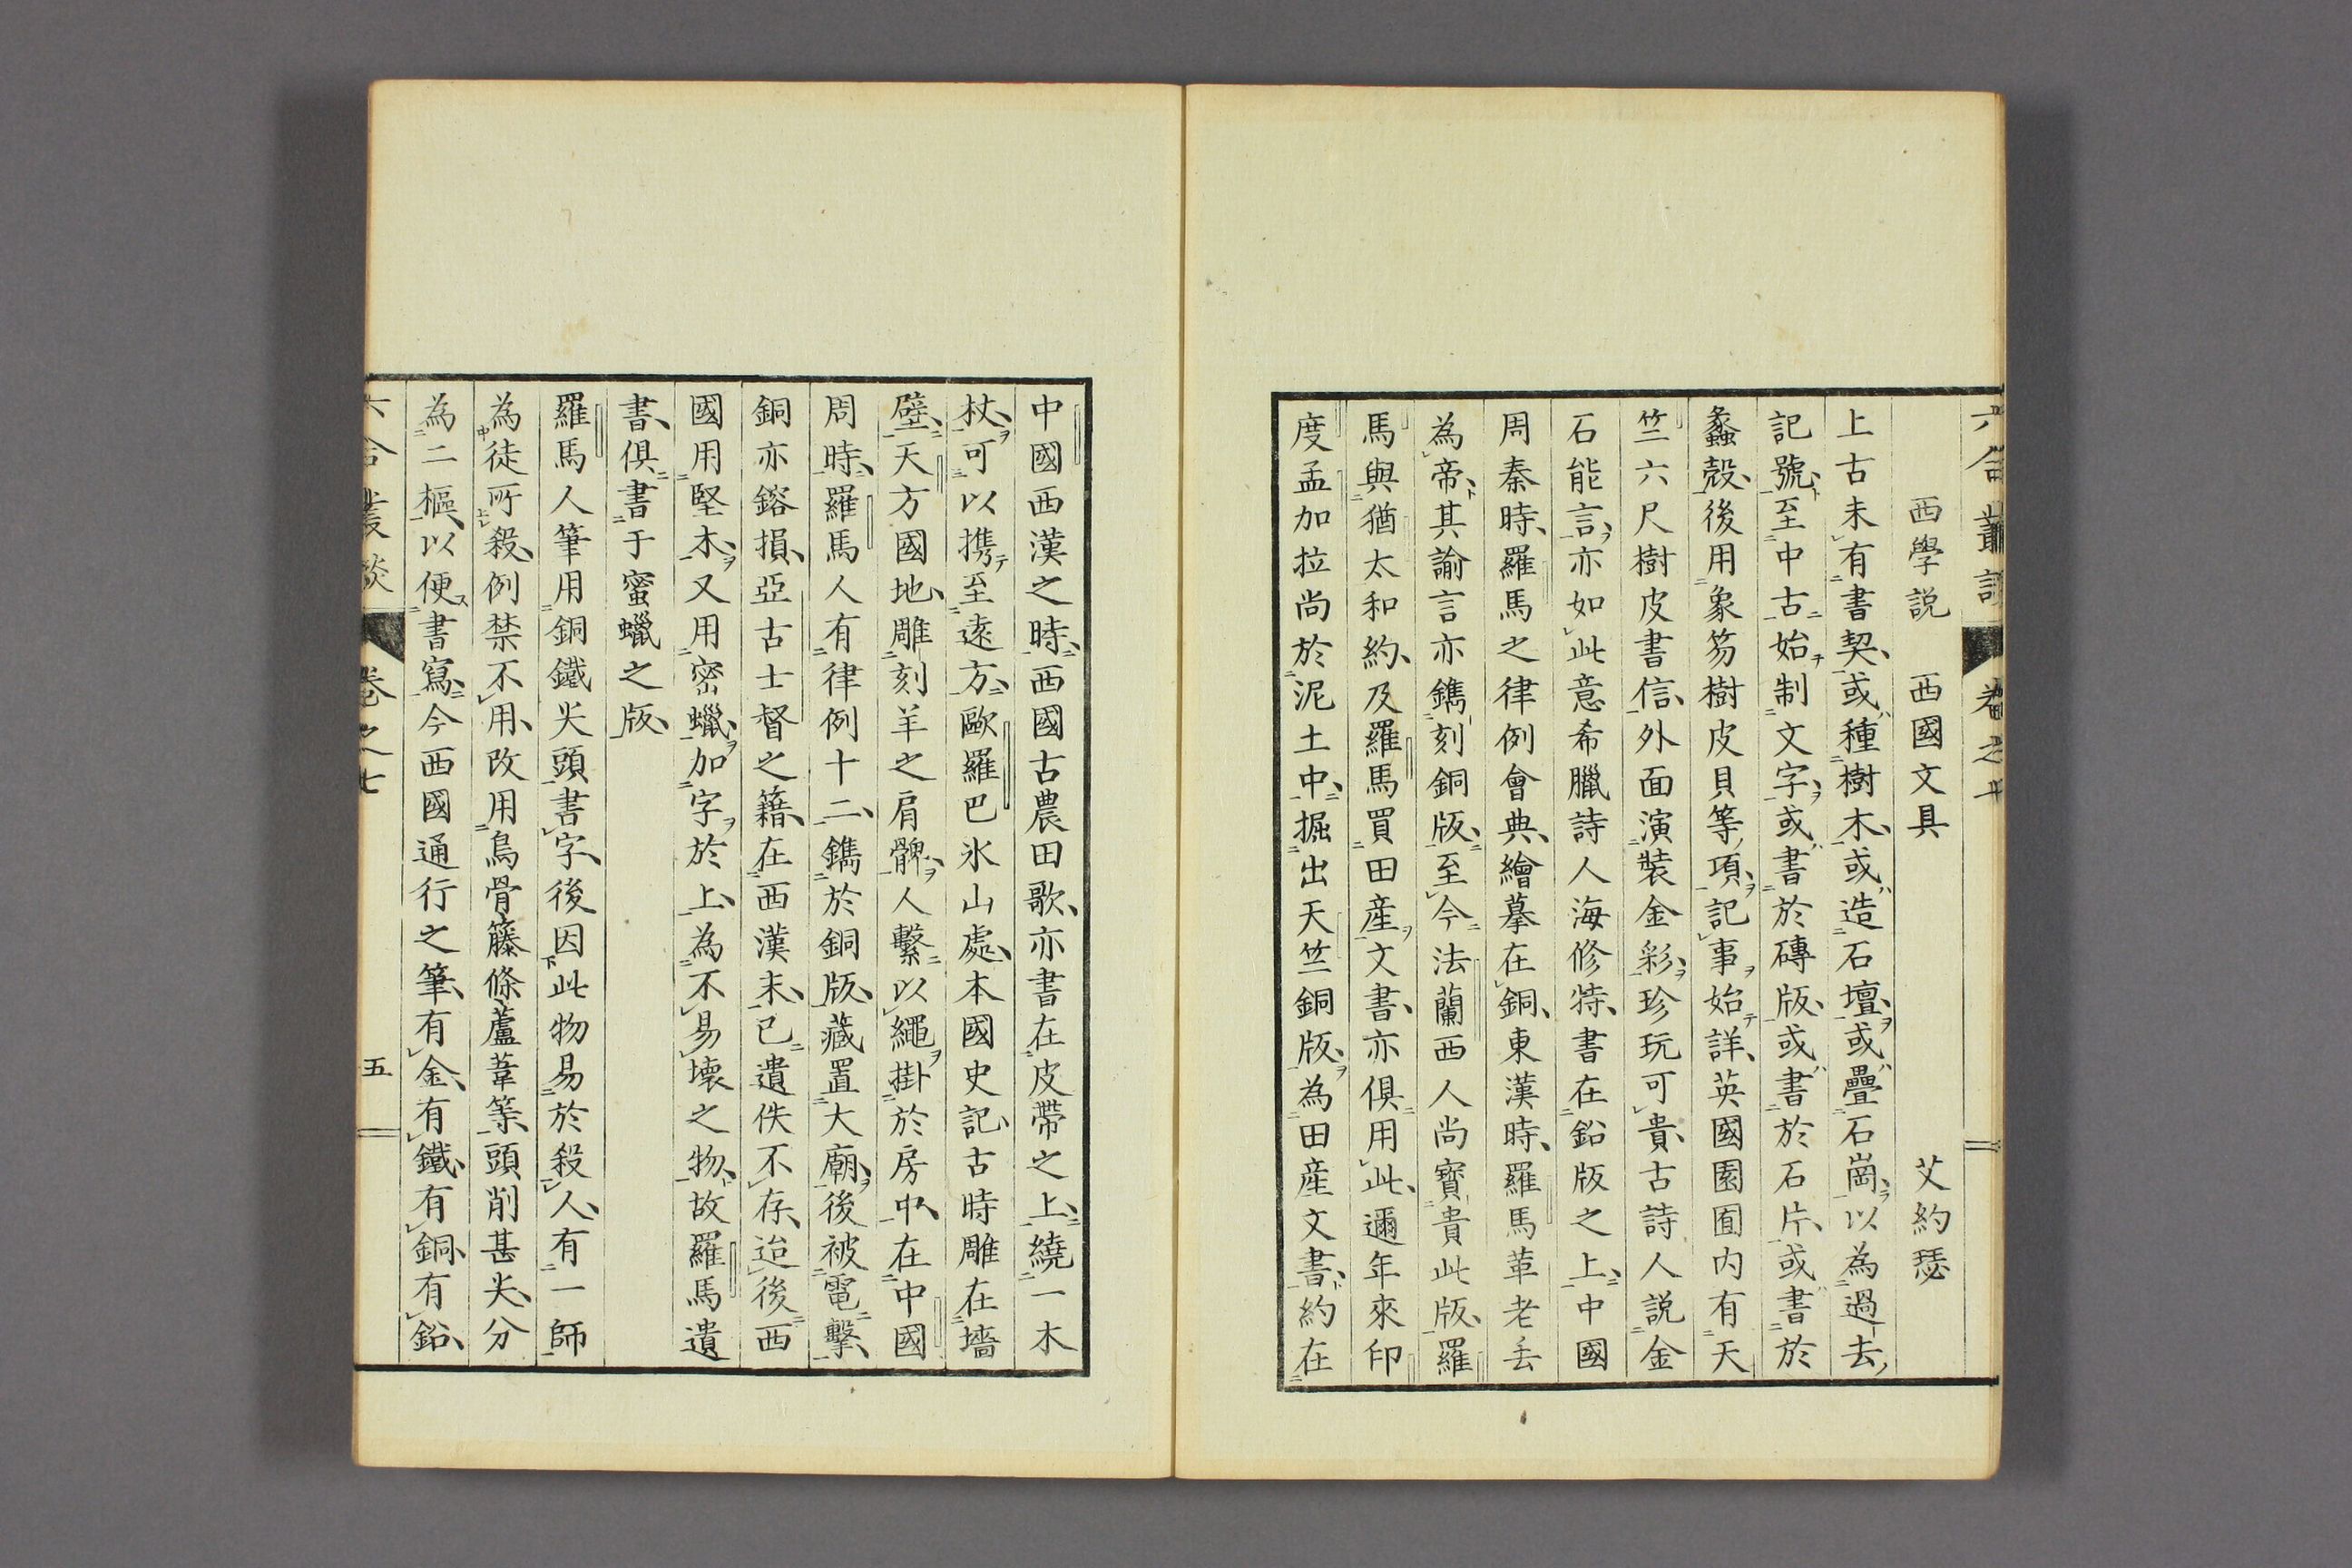 六合叢談 卷之七
西學説 西國文具 艾約瑟
上古未有書契、或種樹木、或造石壇、或疊石崗、以為過去、
記號、至中古、始制文字、或書於磚版、或書於石片、或書於
蠡殼、後用象笏樹皮貝等、項、記事始詳、英國園囿内有天
竺六尺樹皮書信、外面演裝金彩、珍玩可貴、古詩人説金
石能言、亦如此意希臘詩人海修特、書在鉛版之上、中國
周秦時、羅馬之律例會典、繪摹在銅、東漢時、羅馬革老丢
為帝、其諭言亦鐫刻銅版、至今法蘭西人尚寶貴此版、羅
馬與猶太和約、及羅馬買田産文書、亦俱用此、邇年來印
度孟加拉尚於泥土中、掘出天竺銅版、為田産文書、約在
中國西漢之時、西國古農田歌、亦書在皮帶之上、繞一木
杖、可以携至遠方、歐羅巴氷山處、本國史記、古時雕在墻
壁、天方國地、雕刻羊之肩髀、人繫以繩掛於房中、在中國
周時、羅馬人有律例十二、鐫於銅版、藏置大廟、後被電擊、
銅亦鎔損、亞古士督之籍、在西漢末、已遺佚不存、迨後西
國用堅木、又用密蠟、加字於上、為不易壞之物、故羅馬遺
書、俱書于蜜蠟之版、
羅馬人筆用銅鐵尖頭、書字、後因此物易於殺人、有一師
為徒所殺、例禁不用、改用鳥骨籐條蘆葦等、頭削甚尖、分
為二樞、以便書寫、今西國通行之筆、有金、有鐵、有銅、有鉛、
六合叢談 卷之七 五